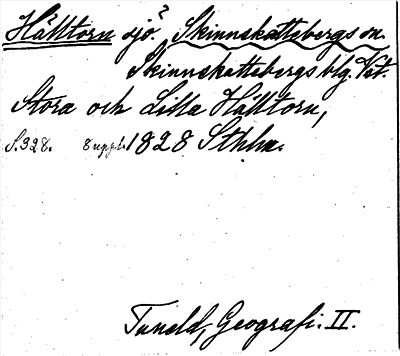 Hälltorn sjö? Skinnskattebergs sn.
Skinnskattebergs blg. Vst.
Stora och Lilla Hälltorn,
S. 328. 8 uppl. 1828 Sthlm.
Tuneld, Geografi. II.